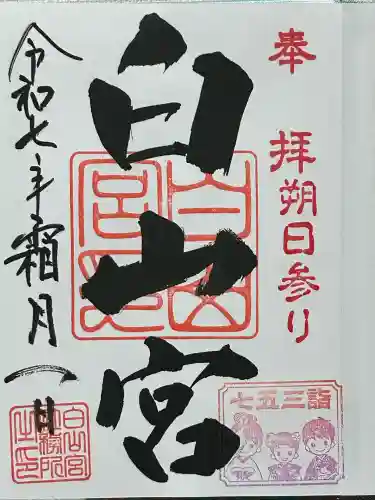 奉拝
朔日参り
白山宮
令和七年霜月一日
七五三詣